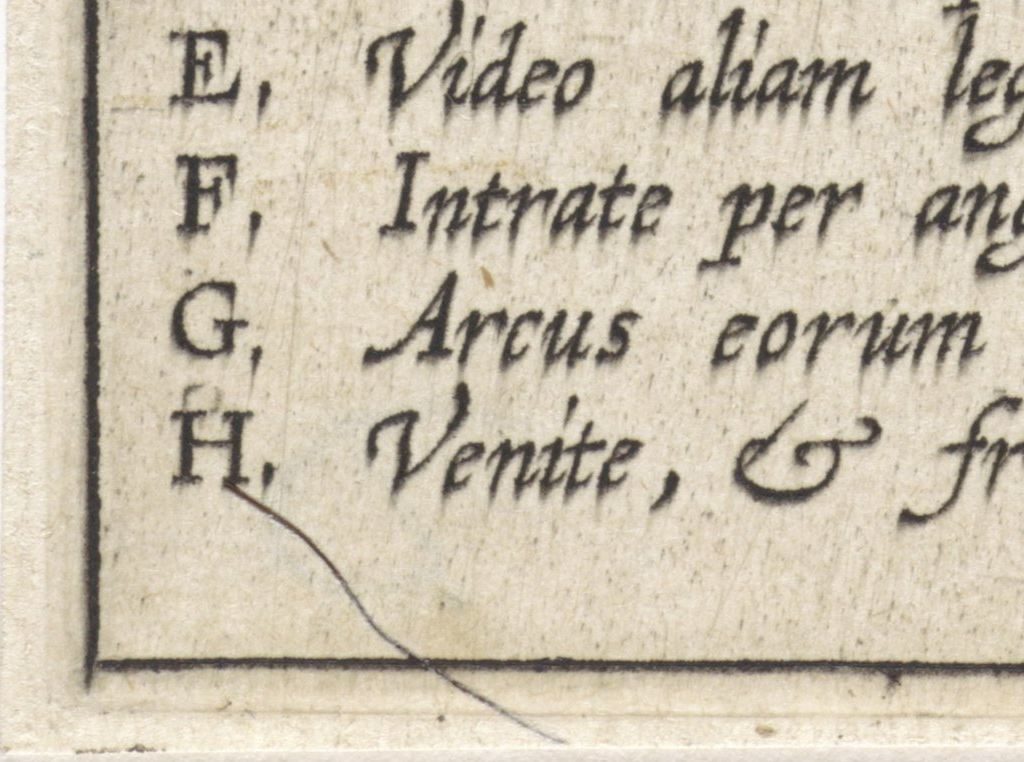 E, Video aliam leg
F, Intrate per ang
G, Arcus eorum
H, Venite, & fr